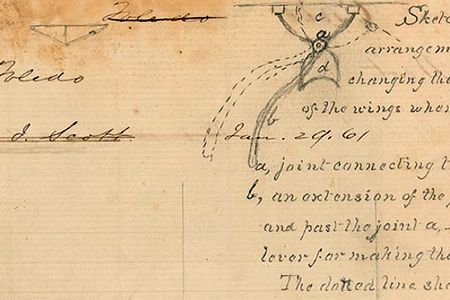 Toledo
c
Sketc
a
arrangem
Toledo
d
changing the
of the wings when
b
J. Scott.
Jan. 29. 61
a, joint connecting t
b, an extension of the
and past the joint a,
lever for making the
The dotted line sho